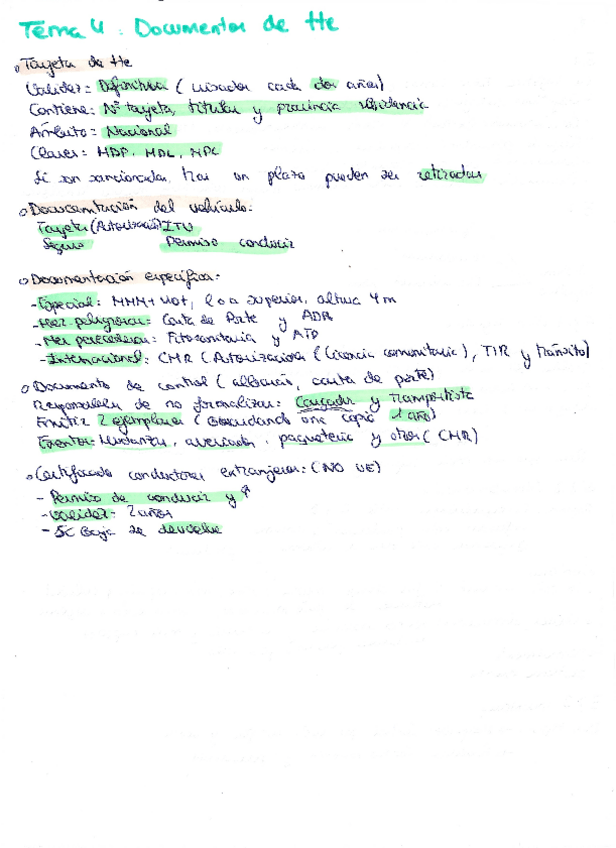 Tema 4: Documentos de tte
Tarjeta de tte
Validez = Definitiva (visados cada dos años)
Contiene: Nº tarjeta, titular y provincia residencia
Ámbito = Nacional
Clases: MDP, MDL, MPC
Si son sancionadas, tras un plazo pueden ser retiradas
Documentación del vehículo:
Tarjeta (Autorización) ITV
Seguro Permiso conducir
Documentación específica:
- Especial: MMM+ 40t, l o a superior, altura 4m
- Mer peligrosas: Carta de Porte y ADR
- Mer perecederas: Fitosanitaria y ATP
- Internacional: CMR (Autorizaciones (licencia comunitaria), TIR y tránsito)
Documento de control (albarán, carta de porte)
Responsables de no formalizar: Cargador y transportista
Emitir 2 ejemplares (guardando una copia 1 año)
Exentos: Mudanzas, averiados, paquetería y otros (CMR)
Certificado conductores extranjeros: (NO UE)
- Permiso de conducir y
- Validez: 2 años
- Si baja se devuelve